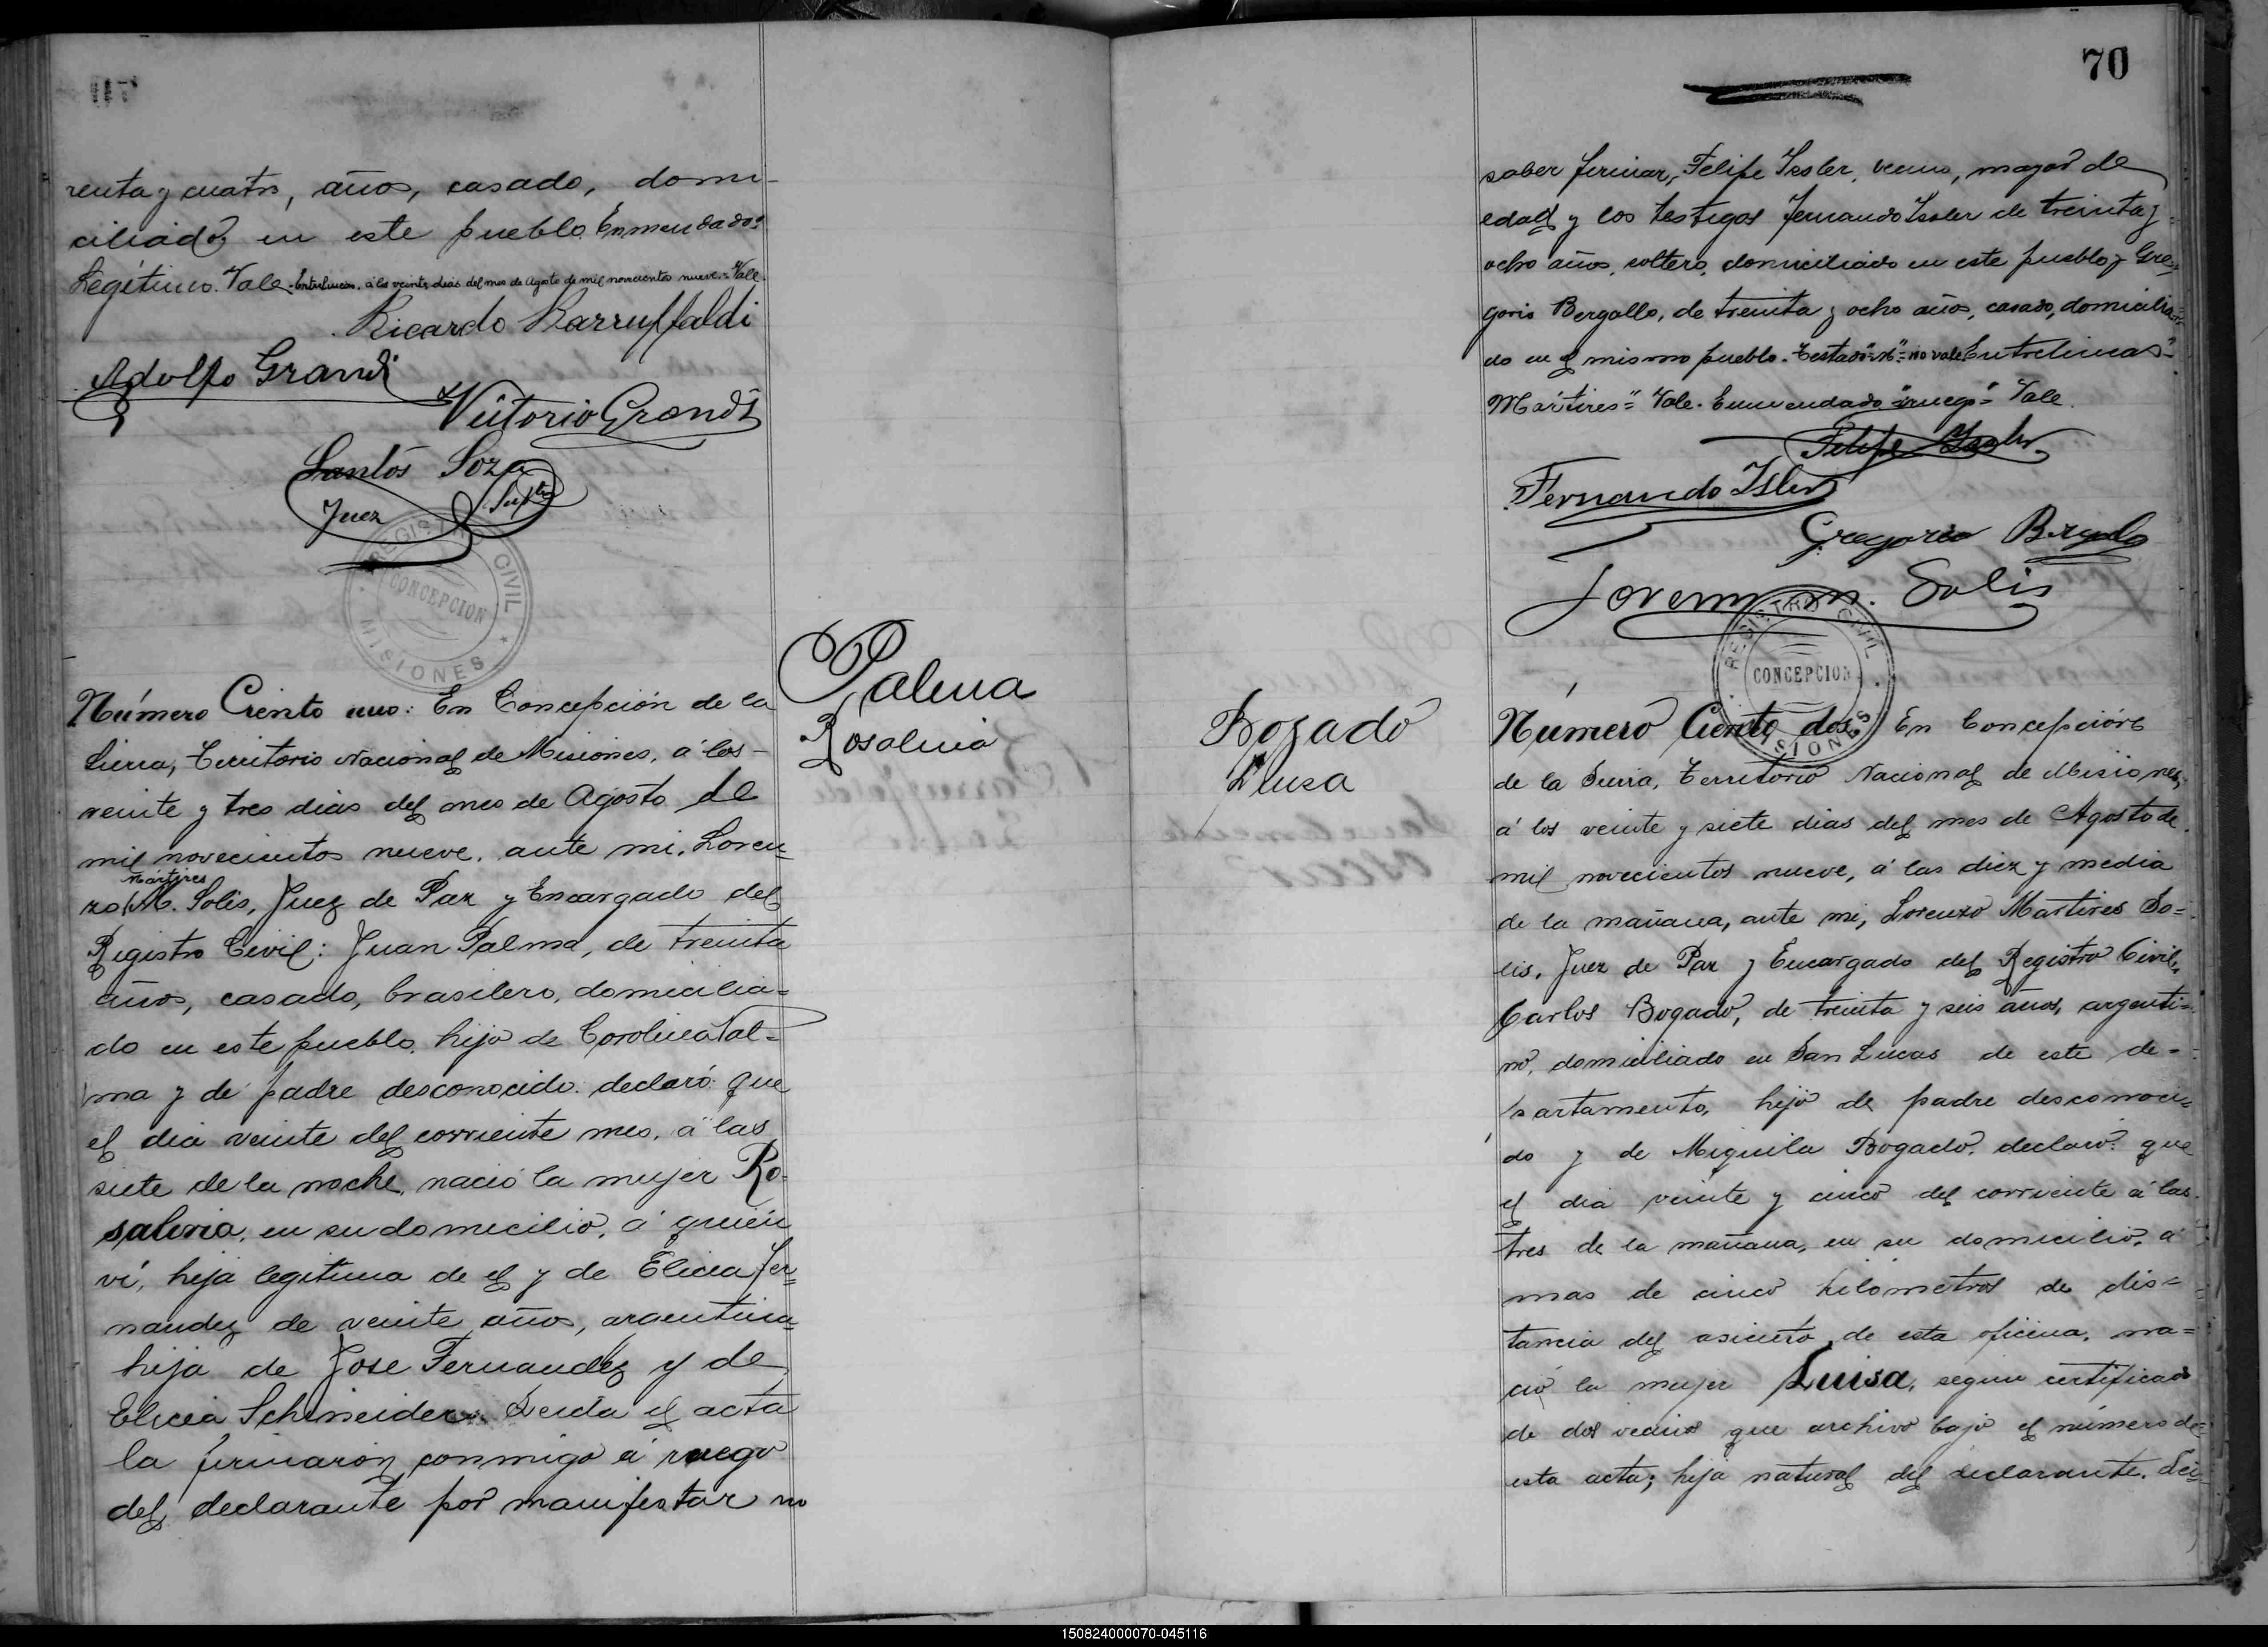 renta y cuatro, años, casado, domi-
ciliado, en este pueblo. Enmendado:
Legítimo. Vale - Entrelineas. á los veinte dias del mes de Agosto de mil novecientos nueve. = Vale.
Ricardo Barruffaldi
Adolfo Grandi
Vittorio Grandi
Santos Soza
Juez Suptte
REGISTRO CIVIL
CONCEPCION
MISIONES
Número Ciento uno: En Concepción de la
Sierra, Territorio Nacional de Misiones, á los-
veinte y tres dias del mes de Agosto de
mil novecientos nueve, ante mi, Loren-
Mártires
zo M. Solis, Juez de Paz y Encargado del
Registro Civil: Juan Palma, de treinta
años, casado, brasilero, domicilia=
do en este pueblo, hijo de Carolina Pal=
ma y de padre desconocido. declaró: que
el dia veinte del corriente mes, á las
siete de la noche, nació la mujer Ro-
salina, en su domicilio, á quién
ví, hija legitima de el y de Elicia Fer=
nandez de veinte años, argentina=
hija de Jose Fernandez y de
Elicia Schineider. Leida el acta
la firmaron conmigo á ruego
del declarante por manifestar no
Palma
Rosalina
70
saber firmar, Felipe Issler, vecino, mayor de
edad y los testigos Fernando Issler de treinta y
ocho años, soltero, domiciliado en este pueblo y Gre-
gorio Bergallo, de treinta y ocho años, casado, domicilia-
do en el mismo pueblo. Testado "M" = no vale. Entrelineas "=
Mártires" = Vale. Enmendado = "ruego" = Vale.
Felipe Issler
Fernando Isler
Gregorio Bergallo
Lorenzo M. Solis
REGISTRO CIVIL
CONCEPCION
MISIONES
Bogado
Luisa
Número Ciento dos: En Concepción
de la Sierra, Territorio Nacional de Misiones,
á los veinte y siete dias del mes de Agosto de
mil novecientos nueve, á las diez y media
de la mañana, ante mi, Lorenzo Martires So=
lis, Juez de Paz y Encargado del Registro Civil,
Carlos Bogado, de treinta y seis años, argenti=
no, domiciliado en San Lucas de este de=
partamento, hijo de padre desconoci=
do y de Miquila Bogado, declaró: que
el dia veinte y cinco del corriente á las
tres de la mañana, en su domicilio, á
mas de cinco kilómetros de dis=
tancia del asiento de esta oficina, na=
ció la mujer Luisa, segun certificado
de dos vecinos que archivo bajo el número de
esta acta; hija natural del declarante. Lei-
150824000070-045116